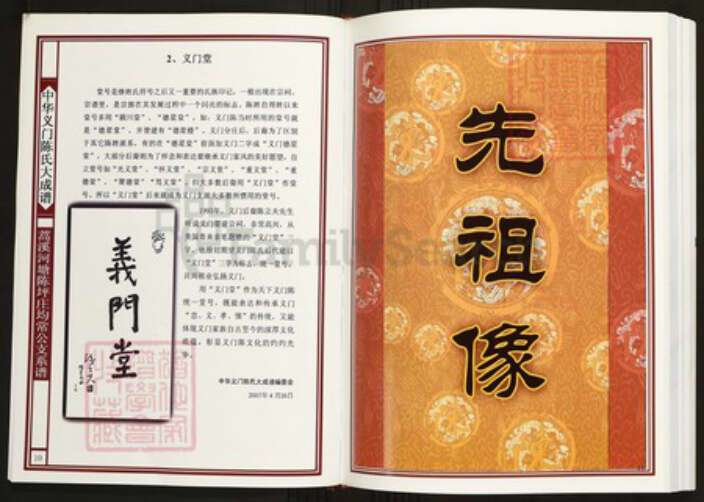 中华义门陈氏大成谱
荔溪河塘陈坪庄均常公支系谱
10
2、义门堂
堂号是修姓氏符号之后又一重要的氏族印记，一般出现在宗祠、
宗谱里，是宗族在其发展过程中一个闪光的标志。陈姓自得姓以来
堂号多用“颍川堂”、“德星堂”，如，义门陈当时所用的堂号就
是“德星堂”，并曾建有“德星楼”。义门分庄后，后裔为了区别
于其它陈姓派系，有的在“德星堂”前添加义门二字成“义门德星
堂”，大部分后裔则为了怀念和表达要继承义门家风的美好愿望，自
立堂号如“光义堂”、“怀义堂”、“宗义堂”、“重义堂”、“重
德堂”、“聚德堂”“笃义堂”，但大多数后裔用“义门堂”作堂
号，所以“义门堂”后来就成为义门支派大多数所惯用的堂号。
义门后裔陈立夫先生
“义门堂”三字为标志，统一堂号，
共同祖业弘扬义门。
用“义门堂”作为天下义门陈
统一堂号，既能表达和传承义门
“忠、义、孝、悌”的传统，又能
体现义门家族自古至今的深厚文化
底蕴，彰显义门陈文化的灼灼光
华。
中华义门陈氏大成谱编委会
2007年4月26日
義門堂
先祖像